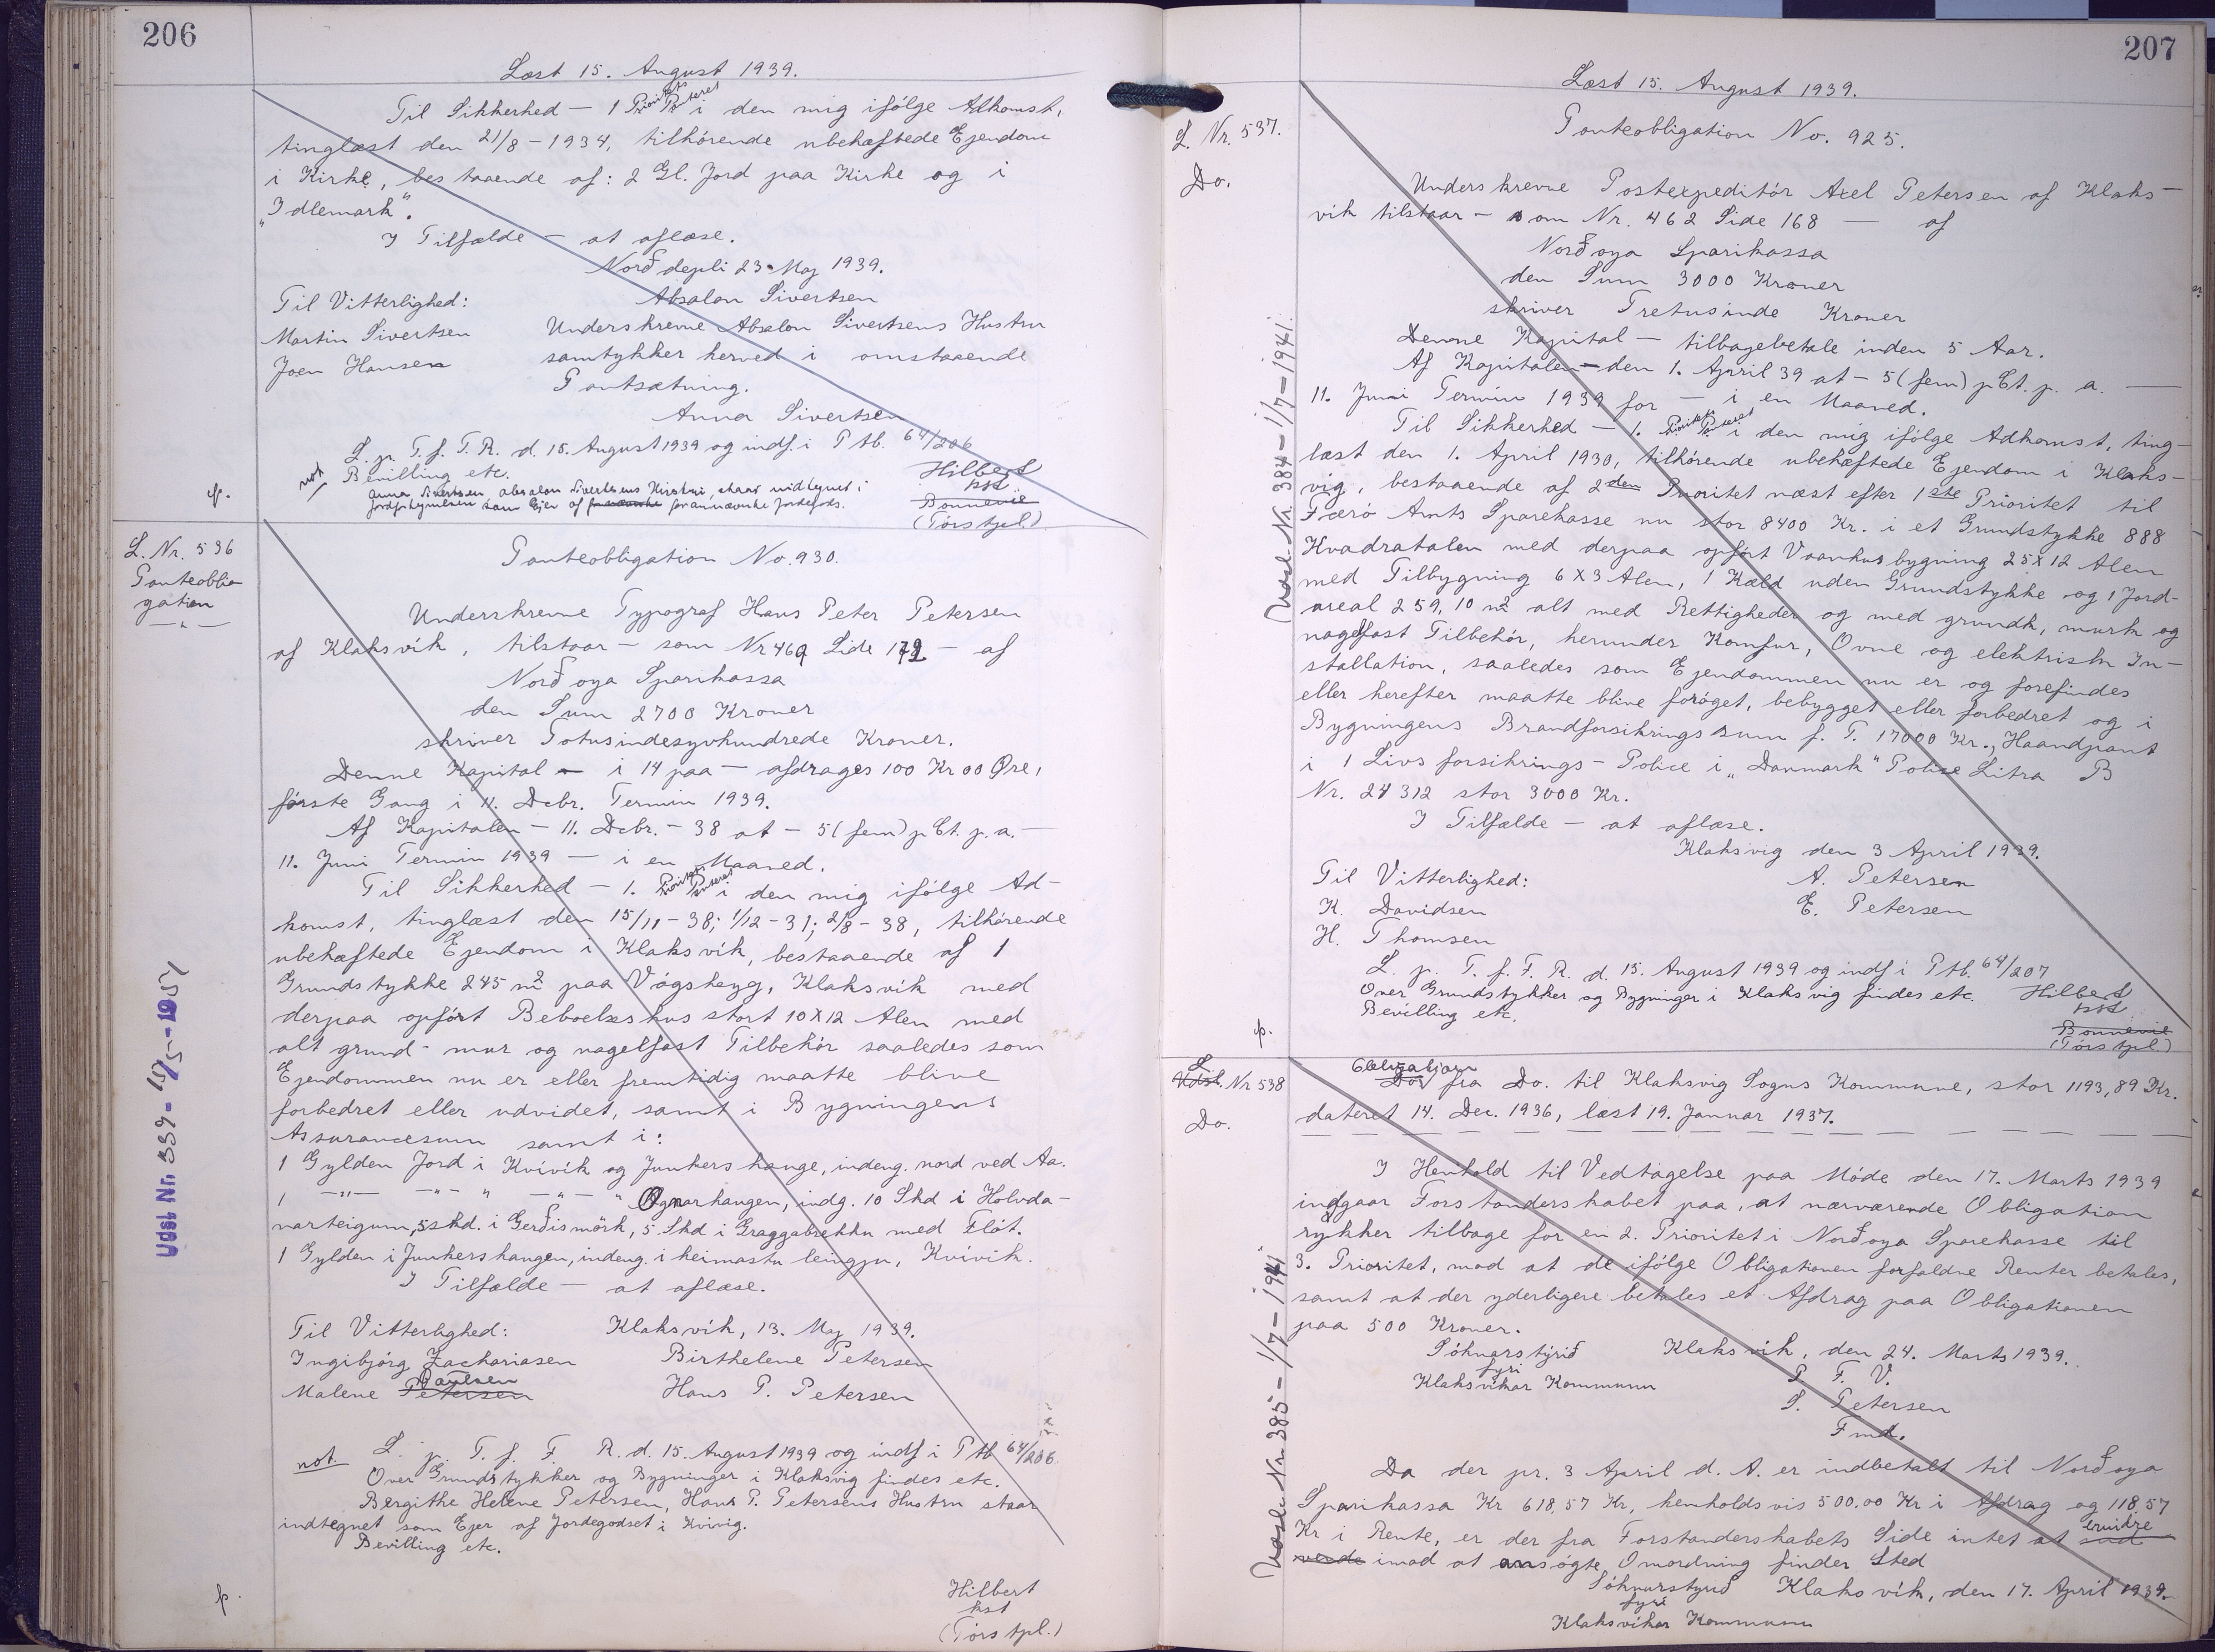 206
Læst 15. August 1939.
Til Sikkerhed — 1 Prioritets Panteret i den mig ifölge Adkomst,
tinglæst den 21/8 - 1934, tilhörende ubehæftede Ejendom
i Kirke, bestaaende af: 2 Gl. Jord paa Kirke og i
"Idlemark".
I Tilfælde — at aflæse.
Norðdepli 23. Maj 1939.
Til Vitterlighed: Absalon Sivertsen
Martin Sivertsen Underskrevne Absalon Sivertsens Hustru
Joen Hansen samtykker herved i omstaaende
Pantsætning.
Anna Sivertsen
L. p. T. f. F. R. d. 15. August 1939 og indf. i Ptb. 64/206
not Bevilling etc. Hilbert
kst
Anna Sivertsen, Absalon Sivertsens Hustru, staar indtegnet i
Jordfortegnelsen som Ejer af forannævnte Jordegods. Bonnevie
p. (Törs tpl.)
L. Nr. 536
Panteobli-
gation
— " —
Panteobligation No. 930.
Underskrevne Typograf Hans Peter Petersen
af Klaksvík, tilstaar — som Nr 469 Side 172 — af
Norðoya Sparikassa
den Sum 2700 Kroner
skriver Totusindesyvhundrede Kroner.
Denne Kapital — i 14 paa — afdrages 100 Kr 00 Øre,
förste Gang i 11. Debr. Termin 1939.
Af Kapitalen — 11. Debr. - 38 at — 5 (fem) pCt. p. a. —
11. Juni Termin 1939 — i en Maaned.
Til Sikkerhed — 1. Prioritets Panteret i den mig ifölge Ad-
komst, tinglæst den 15/11 - 38; 1/12 - 31; 2/8 - 38, tilhörende
ubehæftede Ejendom i Klaksvík, bestaaende af 1
Grundstykke 245 m² paa Vágsheyg, Klaksvík med
derpaa opfört Beboelseshus stort 10 X 12 Alen med
alt grund- mur og nagelfast Tilbehör saaledes som
Ejendommen nu er eller fremtidig maatte blive
forbedret eller udvidet, samt i Bygningens
Assurancesum samt i:
1 Gylden Jord i Kvívík og Junkershange, indeng. nord ved Aa.
1 —"— —"— " —"— " Ognarhangen, indg. 10 Skd i Holvda-
narteigum, 5 skd. i Gerðismörk, 5 Skd i Graggabrekku med Flöt.
1 Gylden i Junkershangen, indeng. i heimastu leingju, Kvívík.
I Tilfælde — at aflæse.
Til Vitterlighed: Klaksvík, 13. Maj 1939.
Ingibjörg Zachariasen Birthelene Petersen
Paulsen
Malene Petersen Hans P. Petersen
not L. p. T. f. F. R. d. 15. August 1939 og indf i Ptb 64/206.
Over Grundstykker og Bygninger i Klaksvig findes etc.
Bergithe Helene Petersen, Hans P. Petersens Hustru staar
indtegnet som Ejer af Jordegodset i Kvivig.
Bevilling etc.
p. Hilbert
kst
(Törs tpl.)
Udsl. Nr. 339 - 15/5 - 1951
207
Læst 15. August 1939.
L. Nr. 537.
Do.
Panteobligation No. 925.
Underskrevne Postexpeditör Axel Petersen af Klaks-
vík tilstaar — som Nr. 462 Side 168 — af
Norðoya Sparikassa
den Sum 3000 Kroner
skriver Tretusinde Kroner
Denne Kapital — tilbagebetale inden 5 Aar.
Af Kapitalen — den 1. April 39 at — 5 (fem) pCt. p. a. —
11. Juni Termin 1939 for — i en Maaned.
Til Sikkerhed — 1. Prioritets Panteret i den mig ifölge Adkomst, ting-
læst den 1. April 1930, tilhörende ubehæftede Ejendom i Klaks-
vig, bestaaende af 2den Prioritet næst efter 1ste Prioritet til
Færö Amts Sparekasse nu stor 8400 Kr. i et Grundstykke 888
Kvadratalen med derpaa opfört Vaanhusbygning 25 X 12 Alen
med Tilbygning 6 X 3 Alen, 1 Kæld uden Grundstykke og 1 Jord-
areal 259,10 m² alt med Rettigheder og med grundk, murk og
nagelfast Tilbehör, herunder Komfur, Ovne og elektrisk In-
stallation, saaledes som Ejendommen nu er og forefindes
eller herefter maatte blive foröget, bebygget eller forbedret og i
Bygningens Brandforsikringssum p. T. 17000 Kr., Haandpant
i 1 Livsforsikrings-Police i "Danmark" Police Litra B
Nr. 24312 stor 3000 Kr.
I Tilfælde — at aflæse.
Klaksvig den 3 April 1939.
Til Vitterlighed: A. Petersen
K. Davidsen E. Petersen
H. Thomsen
L. p. T. f. F. R. d. 15. August 1939 og indf i Ptb. 64/207
Over Grundstykker og Bygninger i Klaksvig findes etc. Hilbert
Bevilling etc. kst
Bonnevie
p. (Törs tpl.)
Udsl. Nr. 384 - 1/7 - 1941.
L
Udsl. Nr 538
Do.
Obligation
Do fra Do. til Klaksvig Sogns Kommune, stor 1193,89 Kr.
dateret 14. Dec. 1936, læst 19. Januar 1937.
I Henhold til Vedtagelse paa Möde den 17. Marts 1939
indgaar Forstanderskabet paa, at nærværende Obligation
rykker tilbage for en 2. Prioritet i Norðoya Sparekasse til
3. Prioritet, mod at de ifölge Obligationen forfaldne Renter betales,
samt at der yderligere betales et Afdrag paa Obligationen
paa 500 Kroner.
Sóknarstýrið Klaksvík, den 24. Marts 1939.
fyri P F. V.
Klaksvíkar Kommunu S. Petersen
Fmd.
Da der pr. 3 April d. A. er indbetalt til Norðoya
Sparikassa Kr 618,57 Kr, henholdsvis 500.00 Kr i Afdrag og 118,57
Kr i Rente, er der fra Forstanderskabets Side intet at
imod at ansögte Omordning finder Sted
Sóknarstyrið Klaksvík, den 17. April 1939.
fyri
Klaksvíkar Kommunu
Udsl. Nr. 385 - 1/7 - 1941